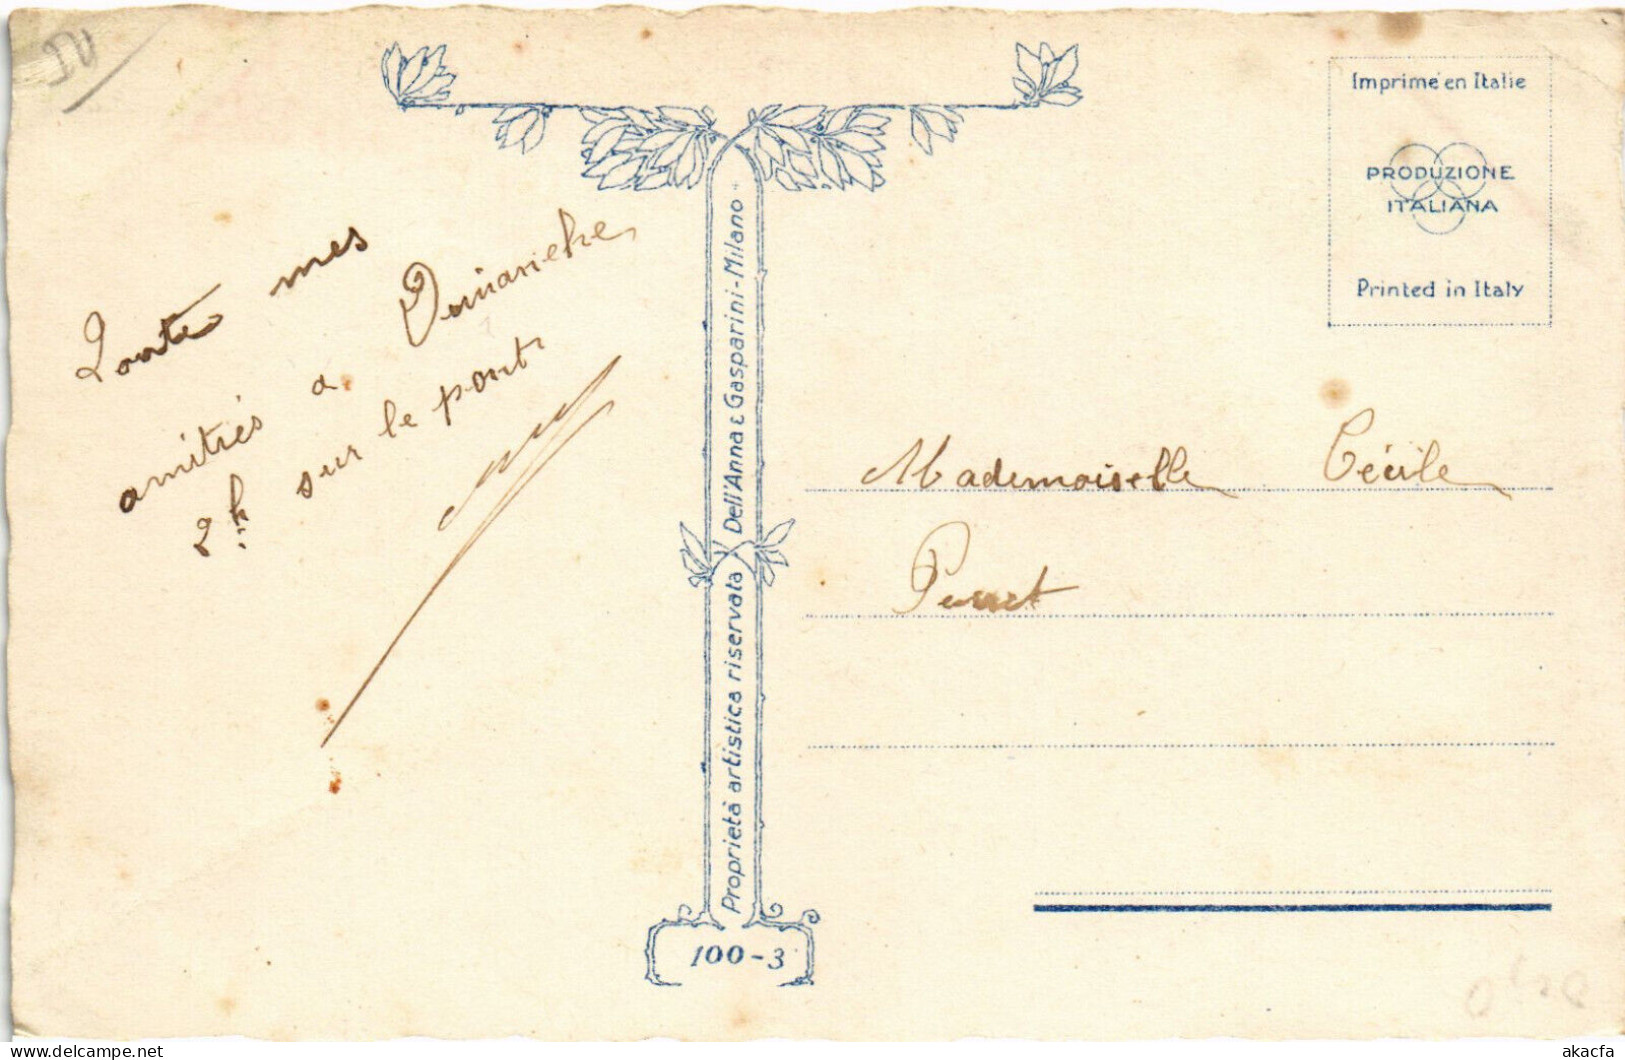 Toutes mes
amitiés a Dimanche
2h. sur le pont
Imprimé en Italie
PRODUZIONE
ITALIANA
Printed in Italy
Mademoiselle Cécile
Proprietà artistica riservata Dell'Anna & Gasparini - Milano
100-3
delcampe.net
akacfa